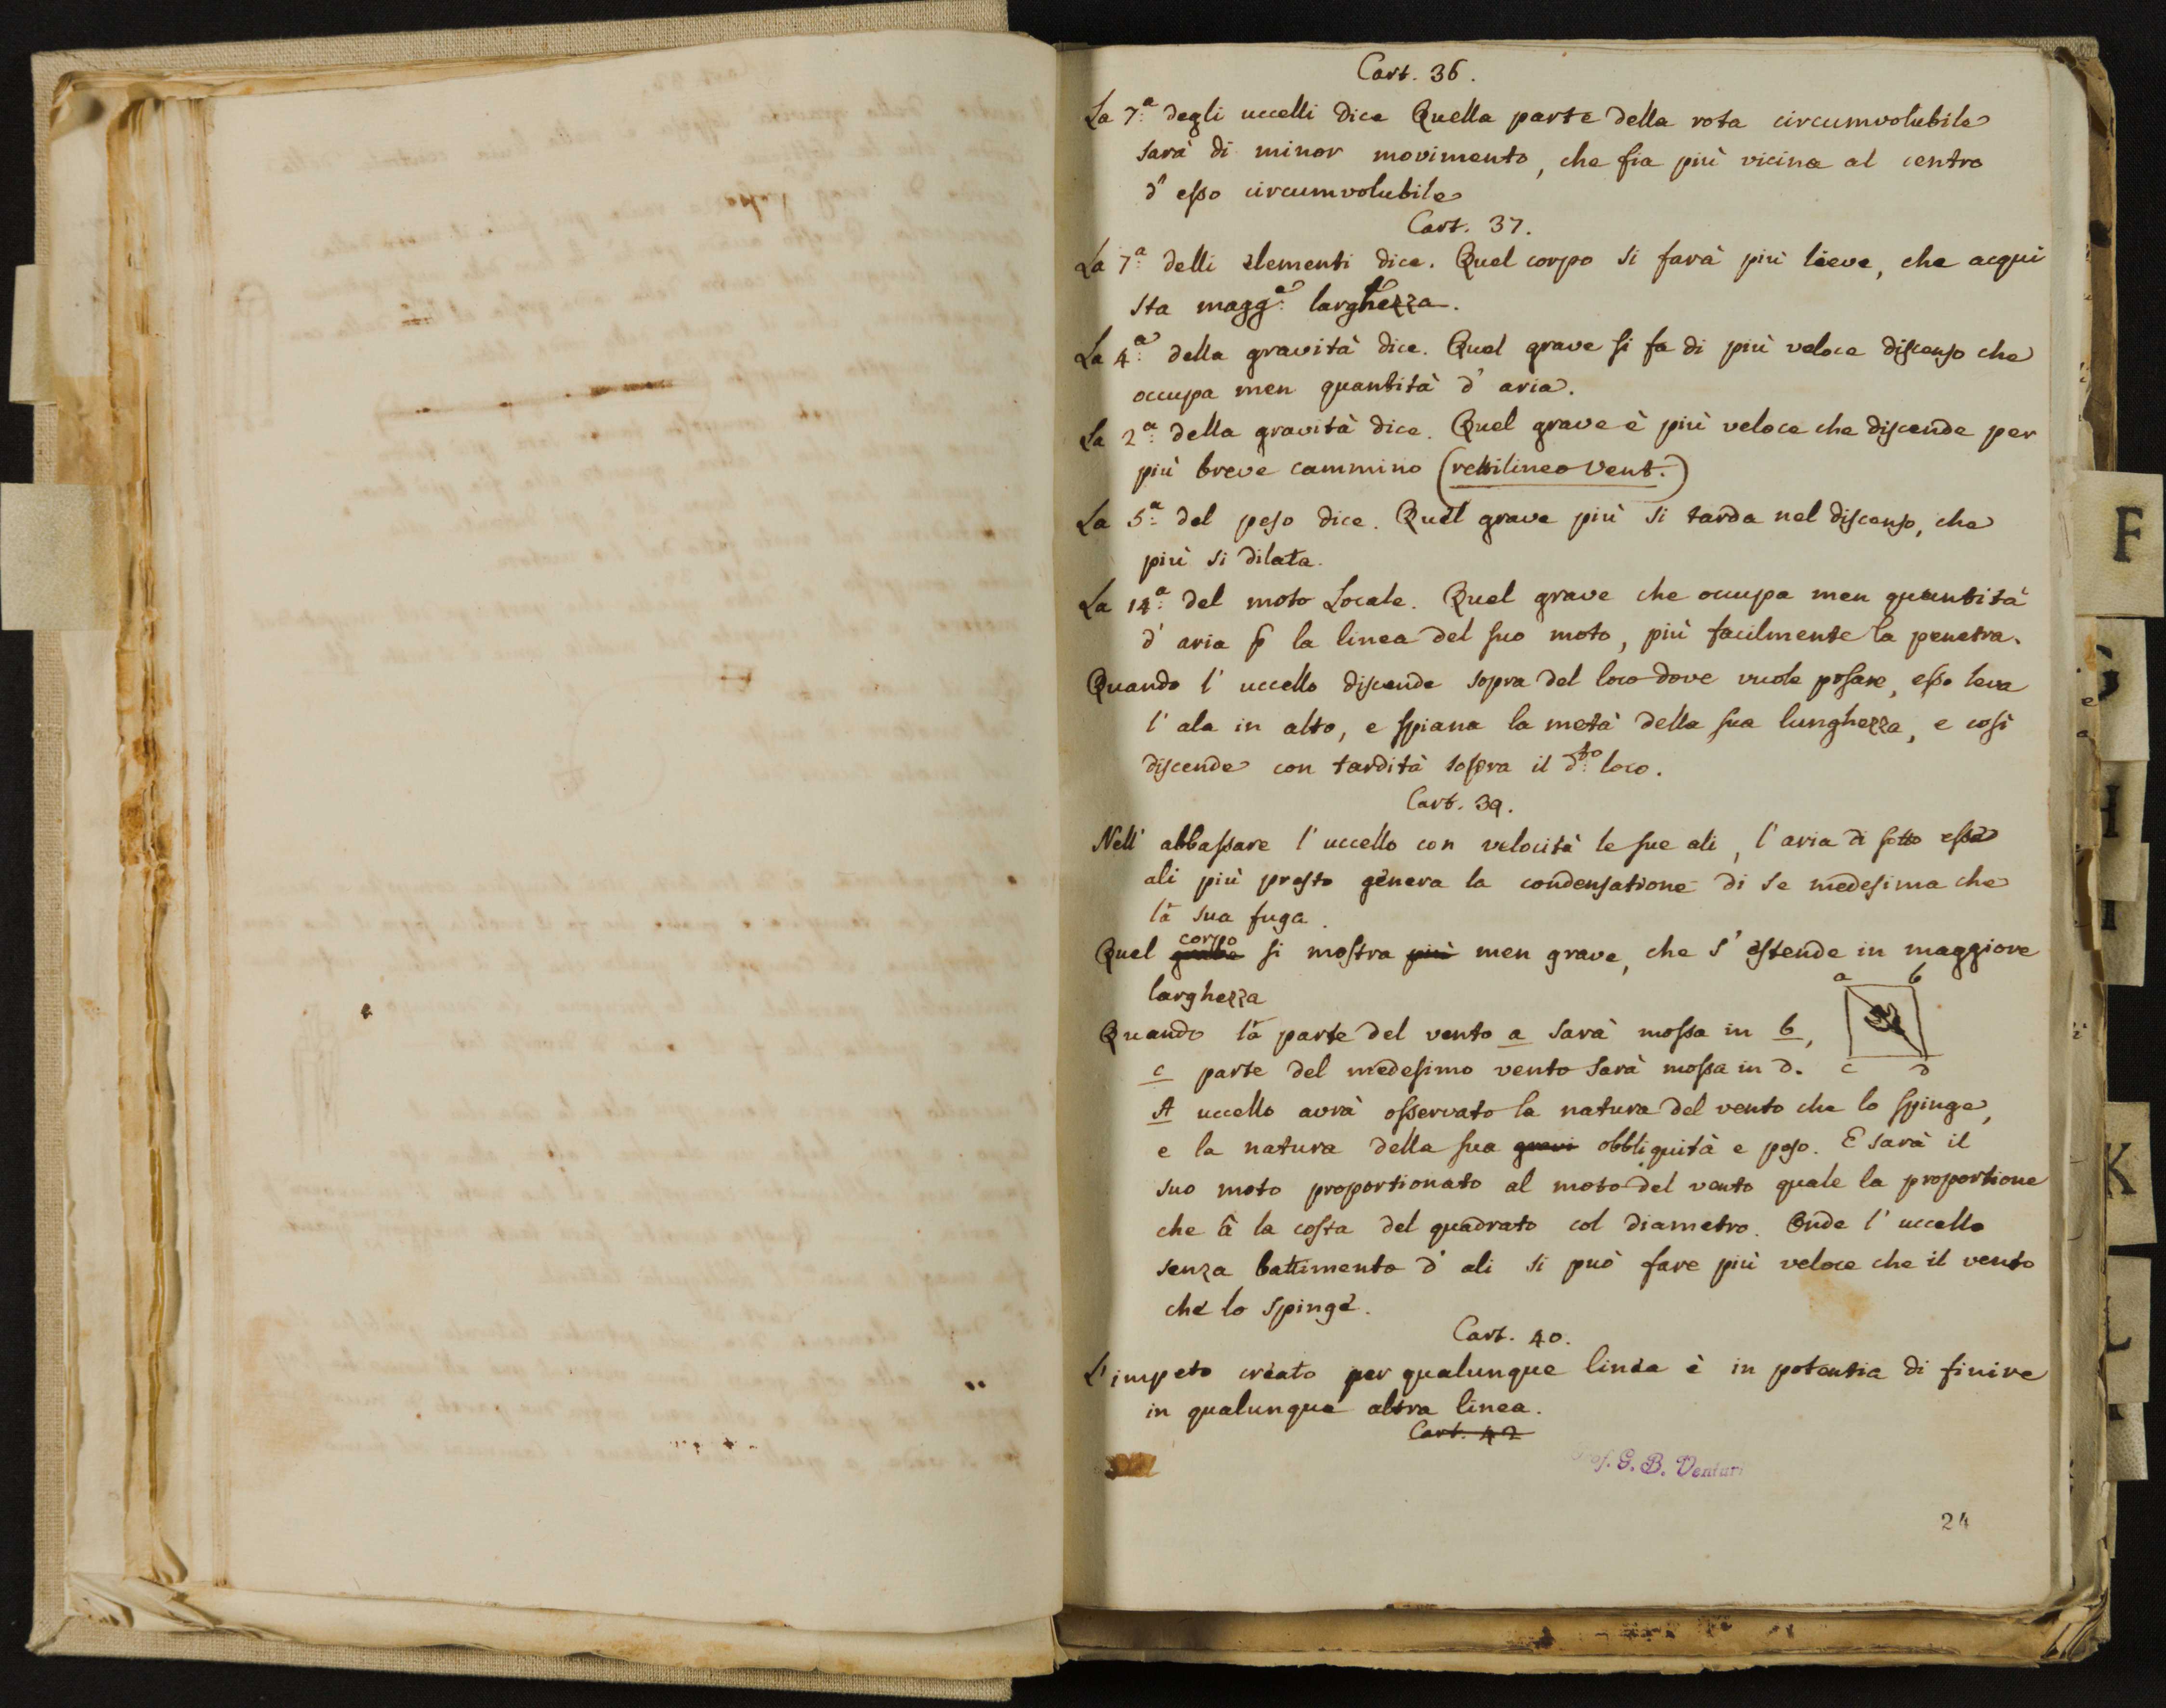 Cart. 36.
La 7.ª degli uccelli dice Quella parte della rota circumvolubile
sarà di minor movimento, che fia più vicina al centro
d' esso circumvolubile
Cart. 37.
La 7.ª delli elementi dice. Quel corpo si farà più lieve, che acqui
sta magg.e larghezza.
La 4.ª della gravità dice. Quel grave si fa di più veloce discenso che
occupa men quantità d' aria.
La 2.ª della gravità dice. Quel grave è più veloce che discende per
più breve cammino (rettilineo Vent.)
La 5.ª del peso dice. Quel grave più si tarda nel discenso, che
più si dilata.
La 14.ª del moto Locale. Quel grave che occupa men quantità
d' aria p la linea del suo moto, più facilmente la penetra.
Quando l' uccello discende sopra del loco dove vuole posare, esso leva
l' ala in alto, e spiana la metà della sua lunghezza, e così
discende con tardità sopra il d.to loco.
Cart. 39.
Nell' abbassare l' uccello con velocità le sue ali, l' aria di sotto esse
ali più presto genera la condensatione di se medesima che
la sua fuga.
corpo
Quel si mostra più men grave, che s' estende in maggiore
larghezza
a b
Quando la parte del vento a sarà mossa in b,
c parte del medesimo vento sarà mossa in d.
c d
A uccello avrà osservato la natura del vento che lo spinge,
e la natura della sua gravi obbliquità e peso. E sarà il
suo moto proportionato al moto del vento quale la proportione
che â la costa del quadrato col diametro. Onde l' uccello
senza battimento d' ali si può fare più veloce che il vento
che lo spinge.
Cart. 40.
L' impeto creato per qualunque linea è in potentia di finire
in qualunque altra linea.
Cart. 42
Prof. G. B. Venturi
24
F
G
H
I
K
L